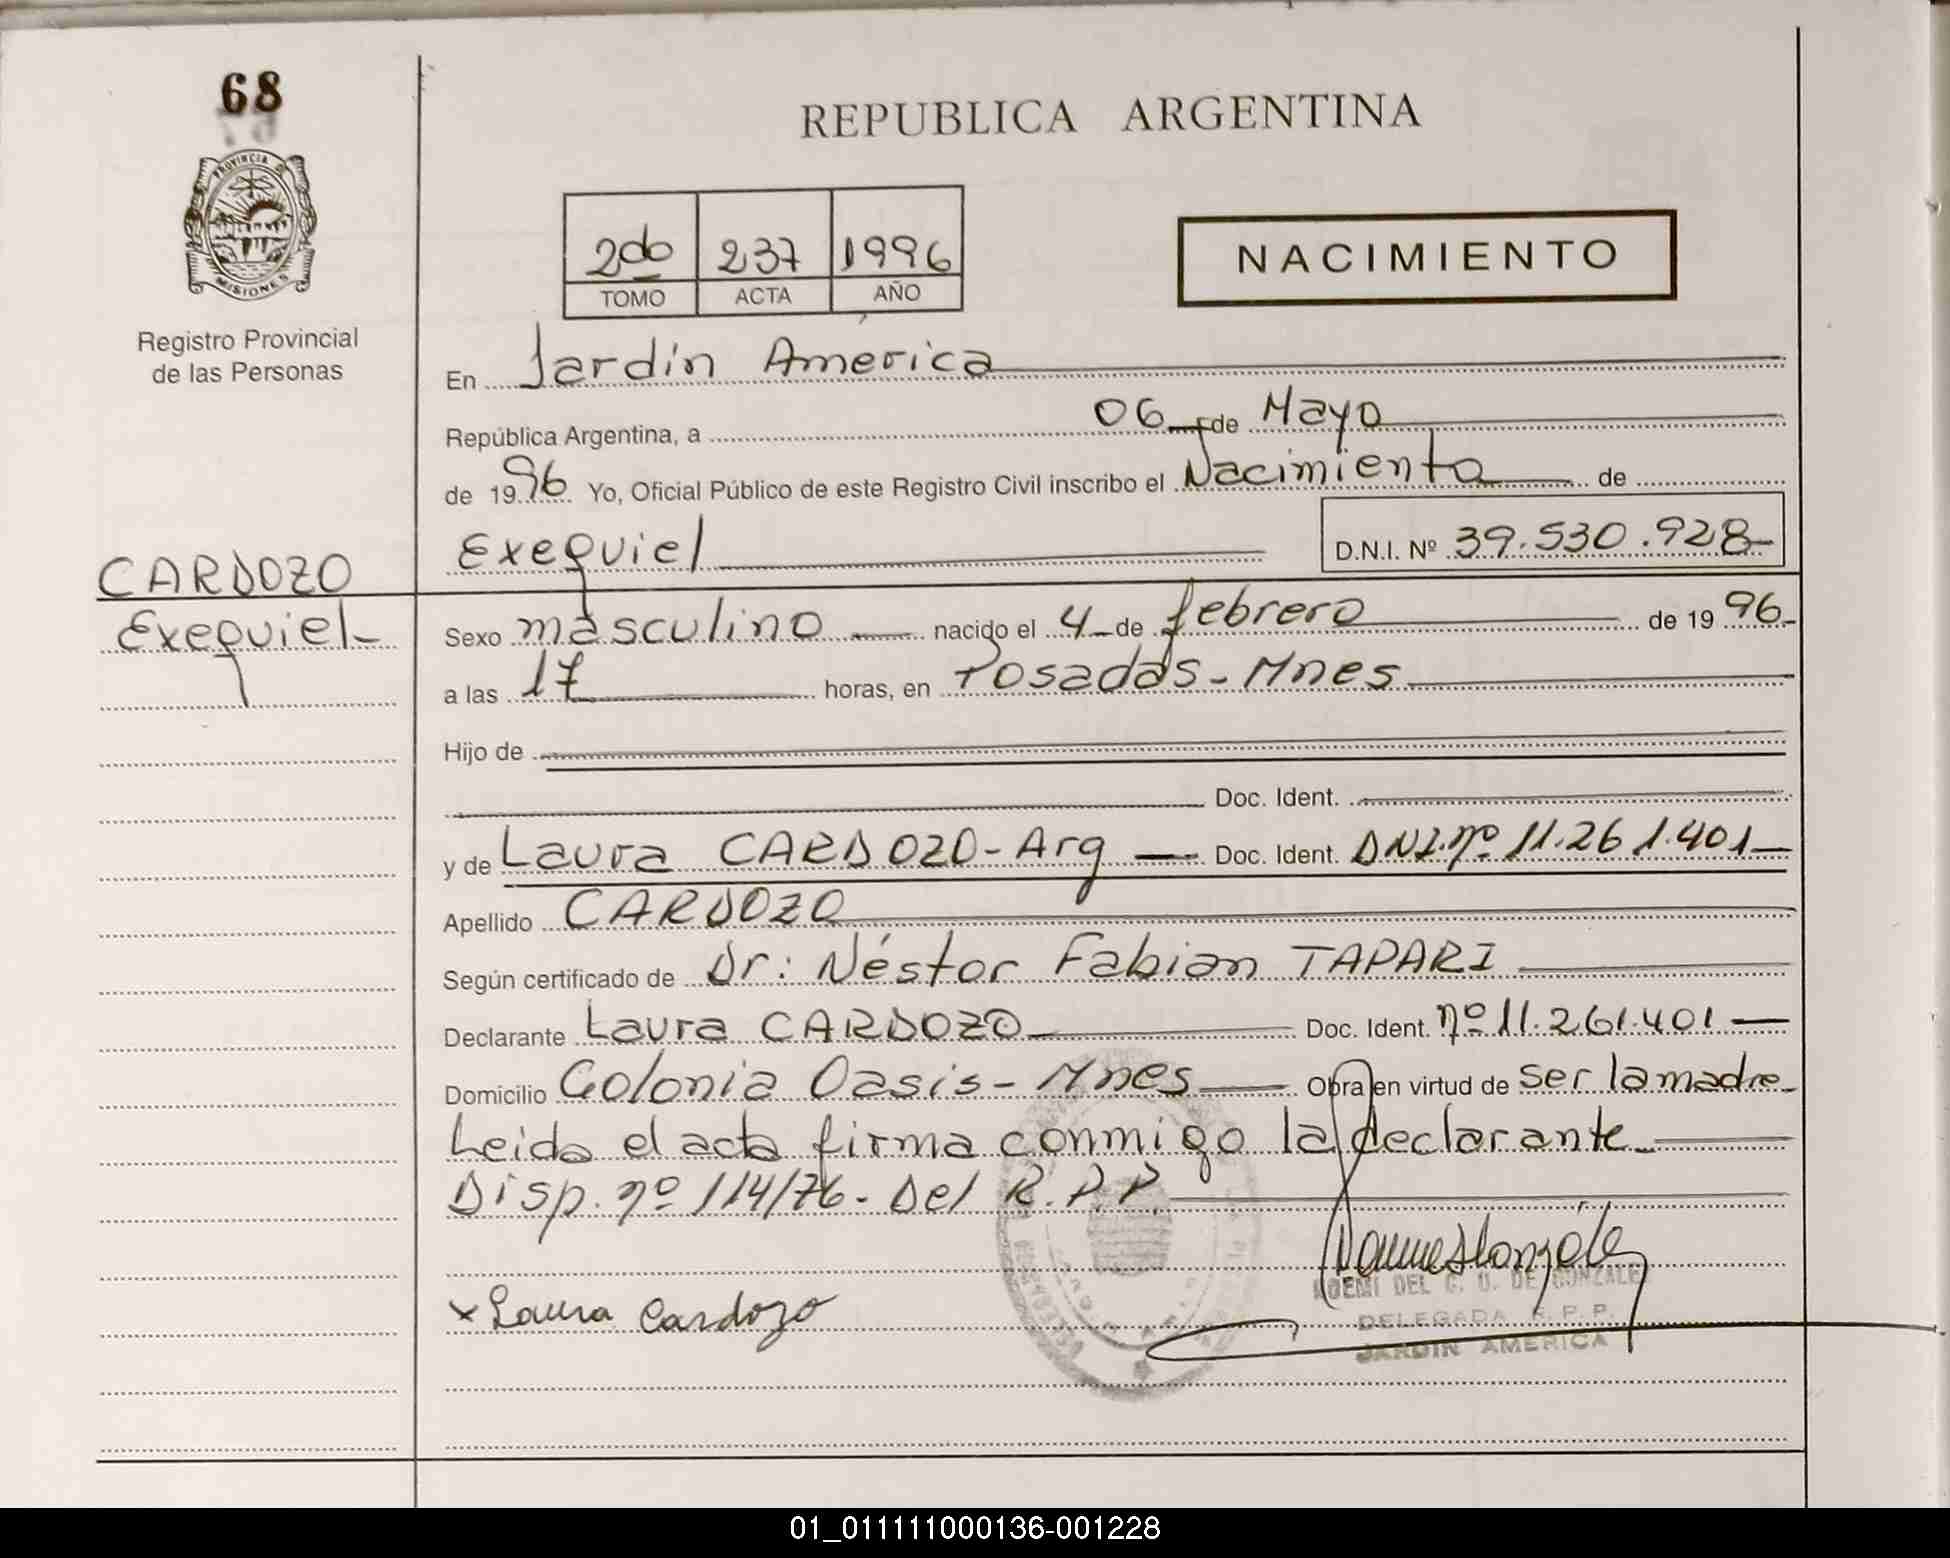 68
REPUBLICA ARGENTINA
PROVINCIA DE MISIONES
2do 237 1996
TOMO ACTA AÑO
NACIMIENTO
Registro Provincial
de las Personas
En Jardín America
República Argentina, a 06 de Mayo
de 1996 Yo, Oficial Público de este Registro Civil inscribo el Nacimiento de
Exequiel D.N.I. Nº 39.530.928
CARDOZO
Exequiel
Sexo masculino nacido el 4 de febrero de 1996
a las 17 horas, en Posadas - Mnes
Hijo de
Doc. Ident.
y de Laura CARDOZO - Arg Doc. Ident. DNI. nº 11.261.401
Apellido CARDOZO
Según certificado de Dr: Néstor Fabian TAPARI
Declarante Laura CARDOZO Doc. Ident. nº 11.261.401
Domicilio Colonia Oasis - Mnes Obra en virtud de ser la madre
Leida el acta firma conmigo la declarante
Disp. nº 114/76 - Del R.P.P.
x Laura Cardozo
NOEMI DEL C. O. DE GONZALEZ
DELEGADA R.P.P.
JARDIN AMERICA
01_011111000136-001228